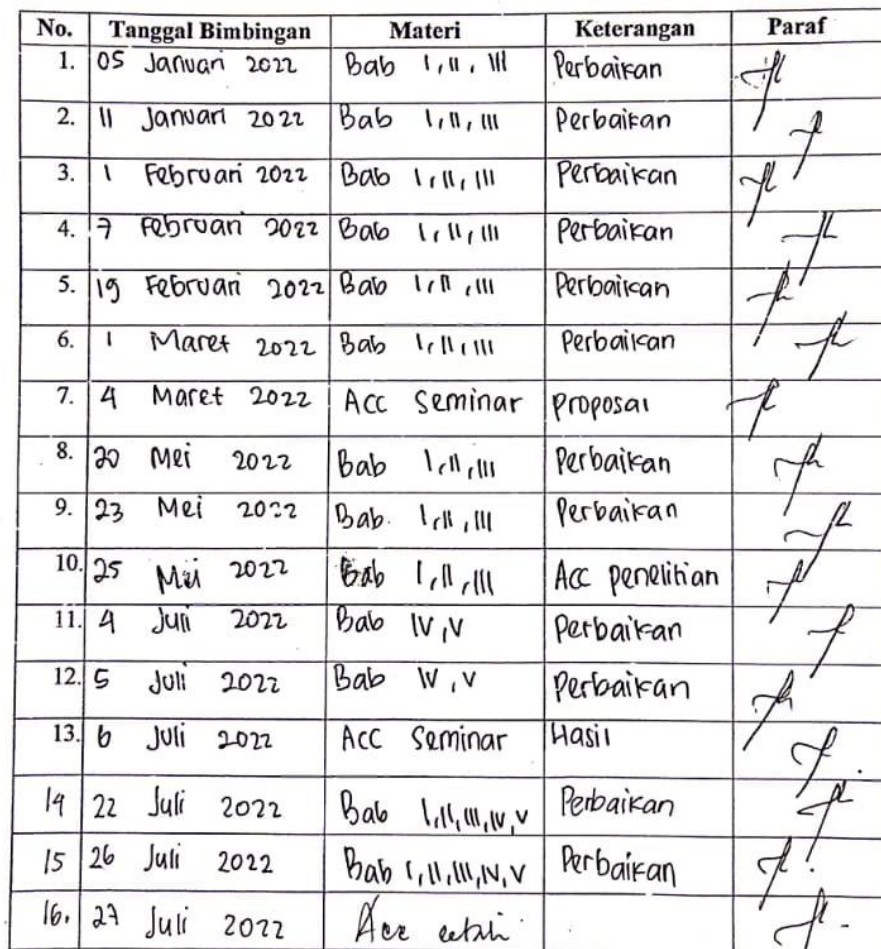 No. Tanggal Bimbingan Materi Keterangan Paraf
1. 05 Januari 2022 Bab I, II, III Perbaikan
2. 11 Januari 2022 Bab I, II, III Perbaikan
3. 1 Februari 2022 Bab I, II, III Perbaikan
4. 7 Februari 2022 Bab I, II, III Perbaikan
5. 19 Februari 2022 Bab I, II, III Perbaikan
6. 1 Maret 2022 Bab I, II, III Perbaikan
7. 4 Maret 2022 Acc Seminar Proposal
8. 20 Mei 2022 Bab I, II, III Perbaikan
9. 23 Mei 2022 Bab. I, II, III Perbaikan
10. 25 Mei 2022 Bab I, II, III Acc penelitian
11. 4 Juli 2022 Bab IV, V Perbaikan
12. 5 Juli 2022 Bab IV, V Perbaikan
13. 6 Juli 2022 Acc Seminar Hasil
14 22 Juli 2022 Bab I, II, III, IV, V Perbaikan
15 26 Juli 2022 Bab I, II, III, IV, V Perbaikan
16. 27 Juli 2022 Acc